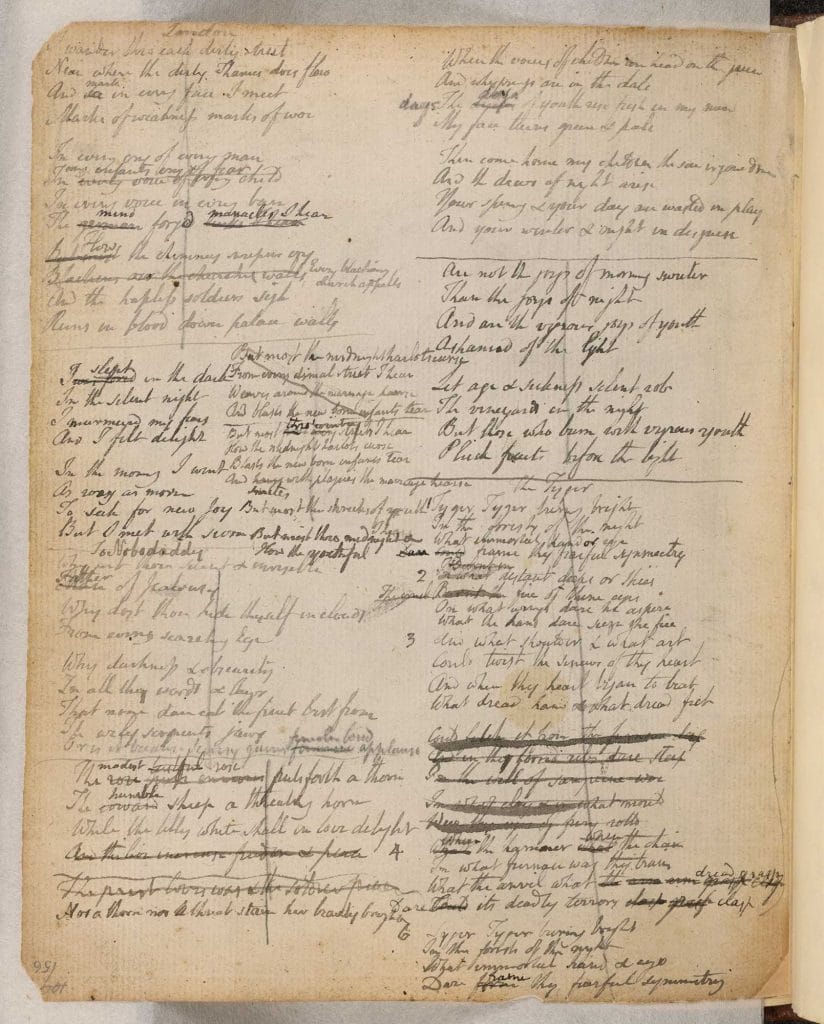 London
I wander thro each dirty street
Near where the dirty Thames does flow
And see mark in every face I meet
Marks of weakness marks of woe
In every cry of every man
In every infants cry of fear
In every voice of every child
In every voice in every ban
The german mind forgd links I hear manacles I hear
But most How the chimney sweepers cry
Blackens oer the churches walls Every blackning church appalls
And the hapless soldiers sigh
Runs in blood down palace walls
But most the midnight harlots curse
From every dismal street I hear
Weaves around the marriage hearse
And blasts the new born infants tear
But most thro wintry streets I hear
How the midnight harlots curse
Blasts the new born infants tear
And hangs smites with plagues the marriage hearse
But most the shrieks of youth I hear
But most thro midnight &c
How the youthful
I slept in the dark
In the silent night
I murmured my fears
And I felt delight
In the morning I went
As rosy as morn
To seek for new Joy
But I met with scorn
To Nobodaddy
Why art thou silent & invisible
Father of Jealousy
Why dost thou hide thyself in clouds
From every searching Eye
Why darkness & obscurity
In all thy words & laws
That none dare eat the fruit but from
The wily serpents jaws
Or is it because Secresy gains females loud applause
The modest rose puts forth a thorn
The coward humble sheep a threatning horn
While the lilly white shall in love delight
And the lion increase freedom & peace
The priest loves war & the soldier peace
Nor a thorn nor a threat stain her beauty bright
When the voices of children are heard on the green
And whisprings are in the dale
The days of youth rise fresh in my mind
My face turns green & pale
Then come home my children the sun is gone down
And the dews of night arise
Your spring & your day are wasted in play
And your winter & night in disguise
Are not the joys of morning sweeter
Than the joys of night
And are the vigrous joys of youth
Ashamed of the light
Let age & sickness silent rob
The vineyards in the night
But those who burn with vigrous youth
Pluck fruits before the light
The Tyger
1 Tyger Tyger burning bright
In the forests of the night
What immortal hand or eye
Dare frame thy fearful symmetry
2 Burnt in
In what distant deeps or skies
The cruel Burnt the fire of thine eyes
On what wings dare he aspire
What the hand dare sieze the fire
3 And what shoulder & what art
Could twist the sinews of thy heart
And when thy heart began to beat
What dread hand & what dread feet
Could fetch it from the furnace deep
And in thy horrid ribs dare steep
In the well of sanguine woe
In what clay & in what mould
Were thy eyes of fury rolld
4 Where What the hammer what Where the chain
In what furnace was thy brain
What the anvil what the arm arm grasp clasp dread grasp
Dare Could its deadly terrors clasp grasp clasp
6 Tyger Tyger burning bright
In the forests of the night
What immortal hand & eye
Dare form frame thy fearful symmetry